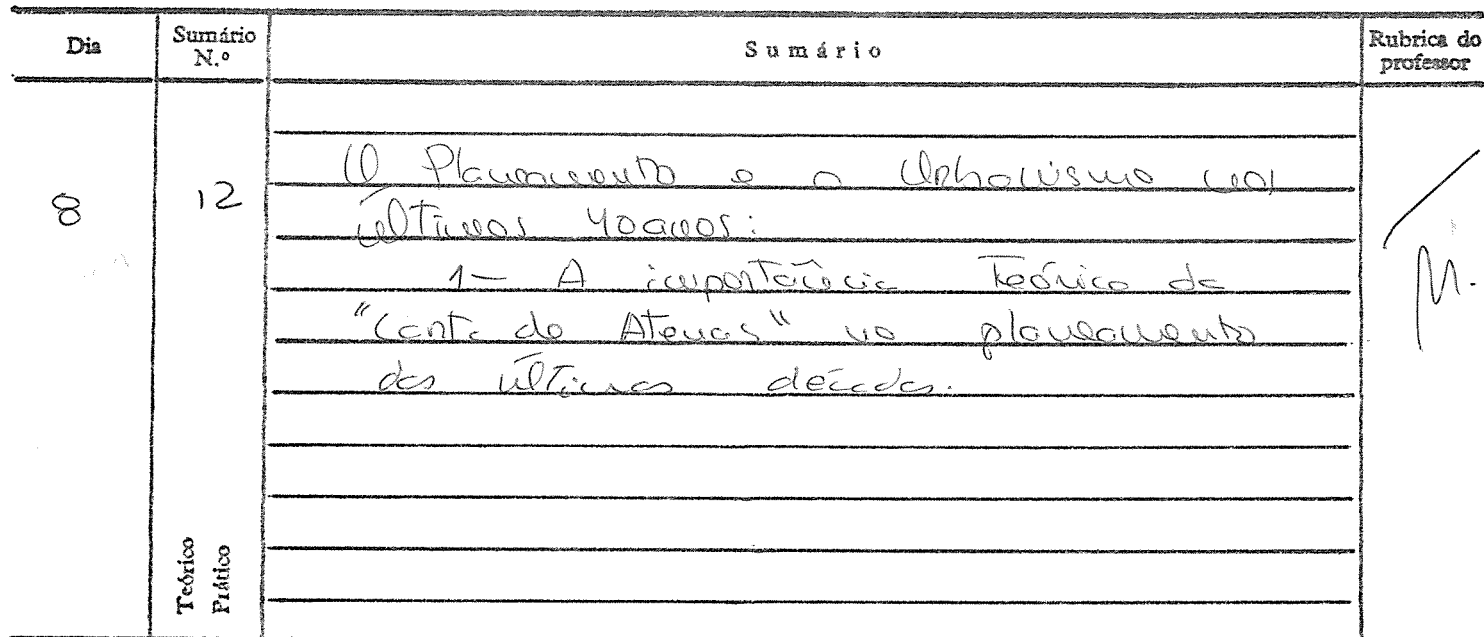 Dia
Sumário N.º
Sumário
Rubrica do professor
8
12
O Planeamento e o Urbanismo nos
últimos 40 anos:
1- A importância Teórica da
"Carta de Atenas" no planeamento
das últimas décadas.
M.
Teórico
Prático